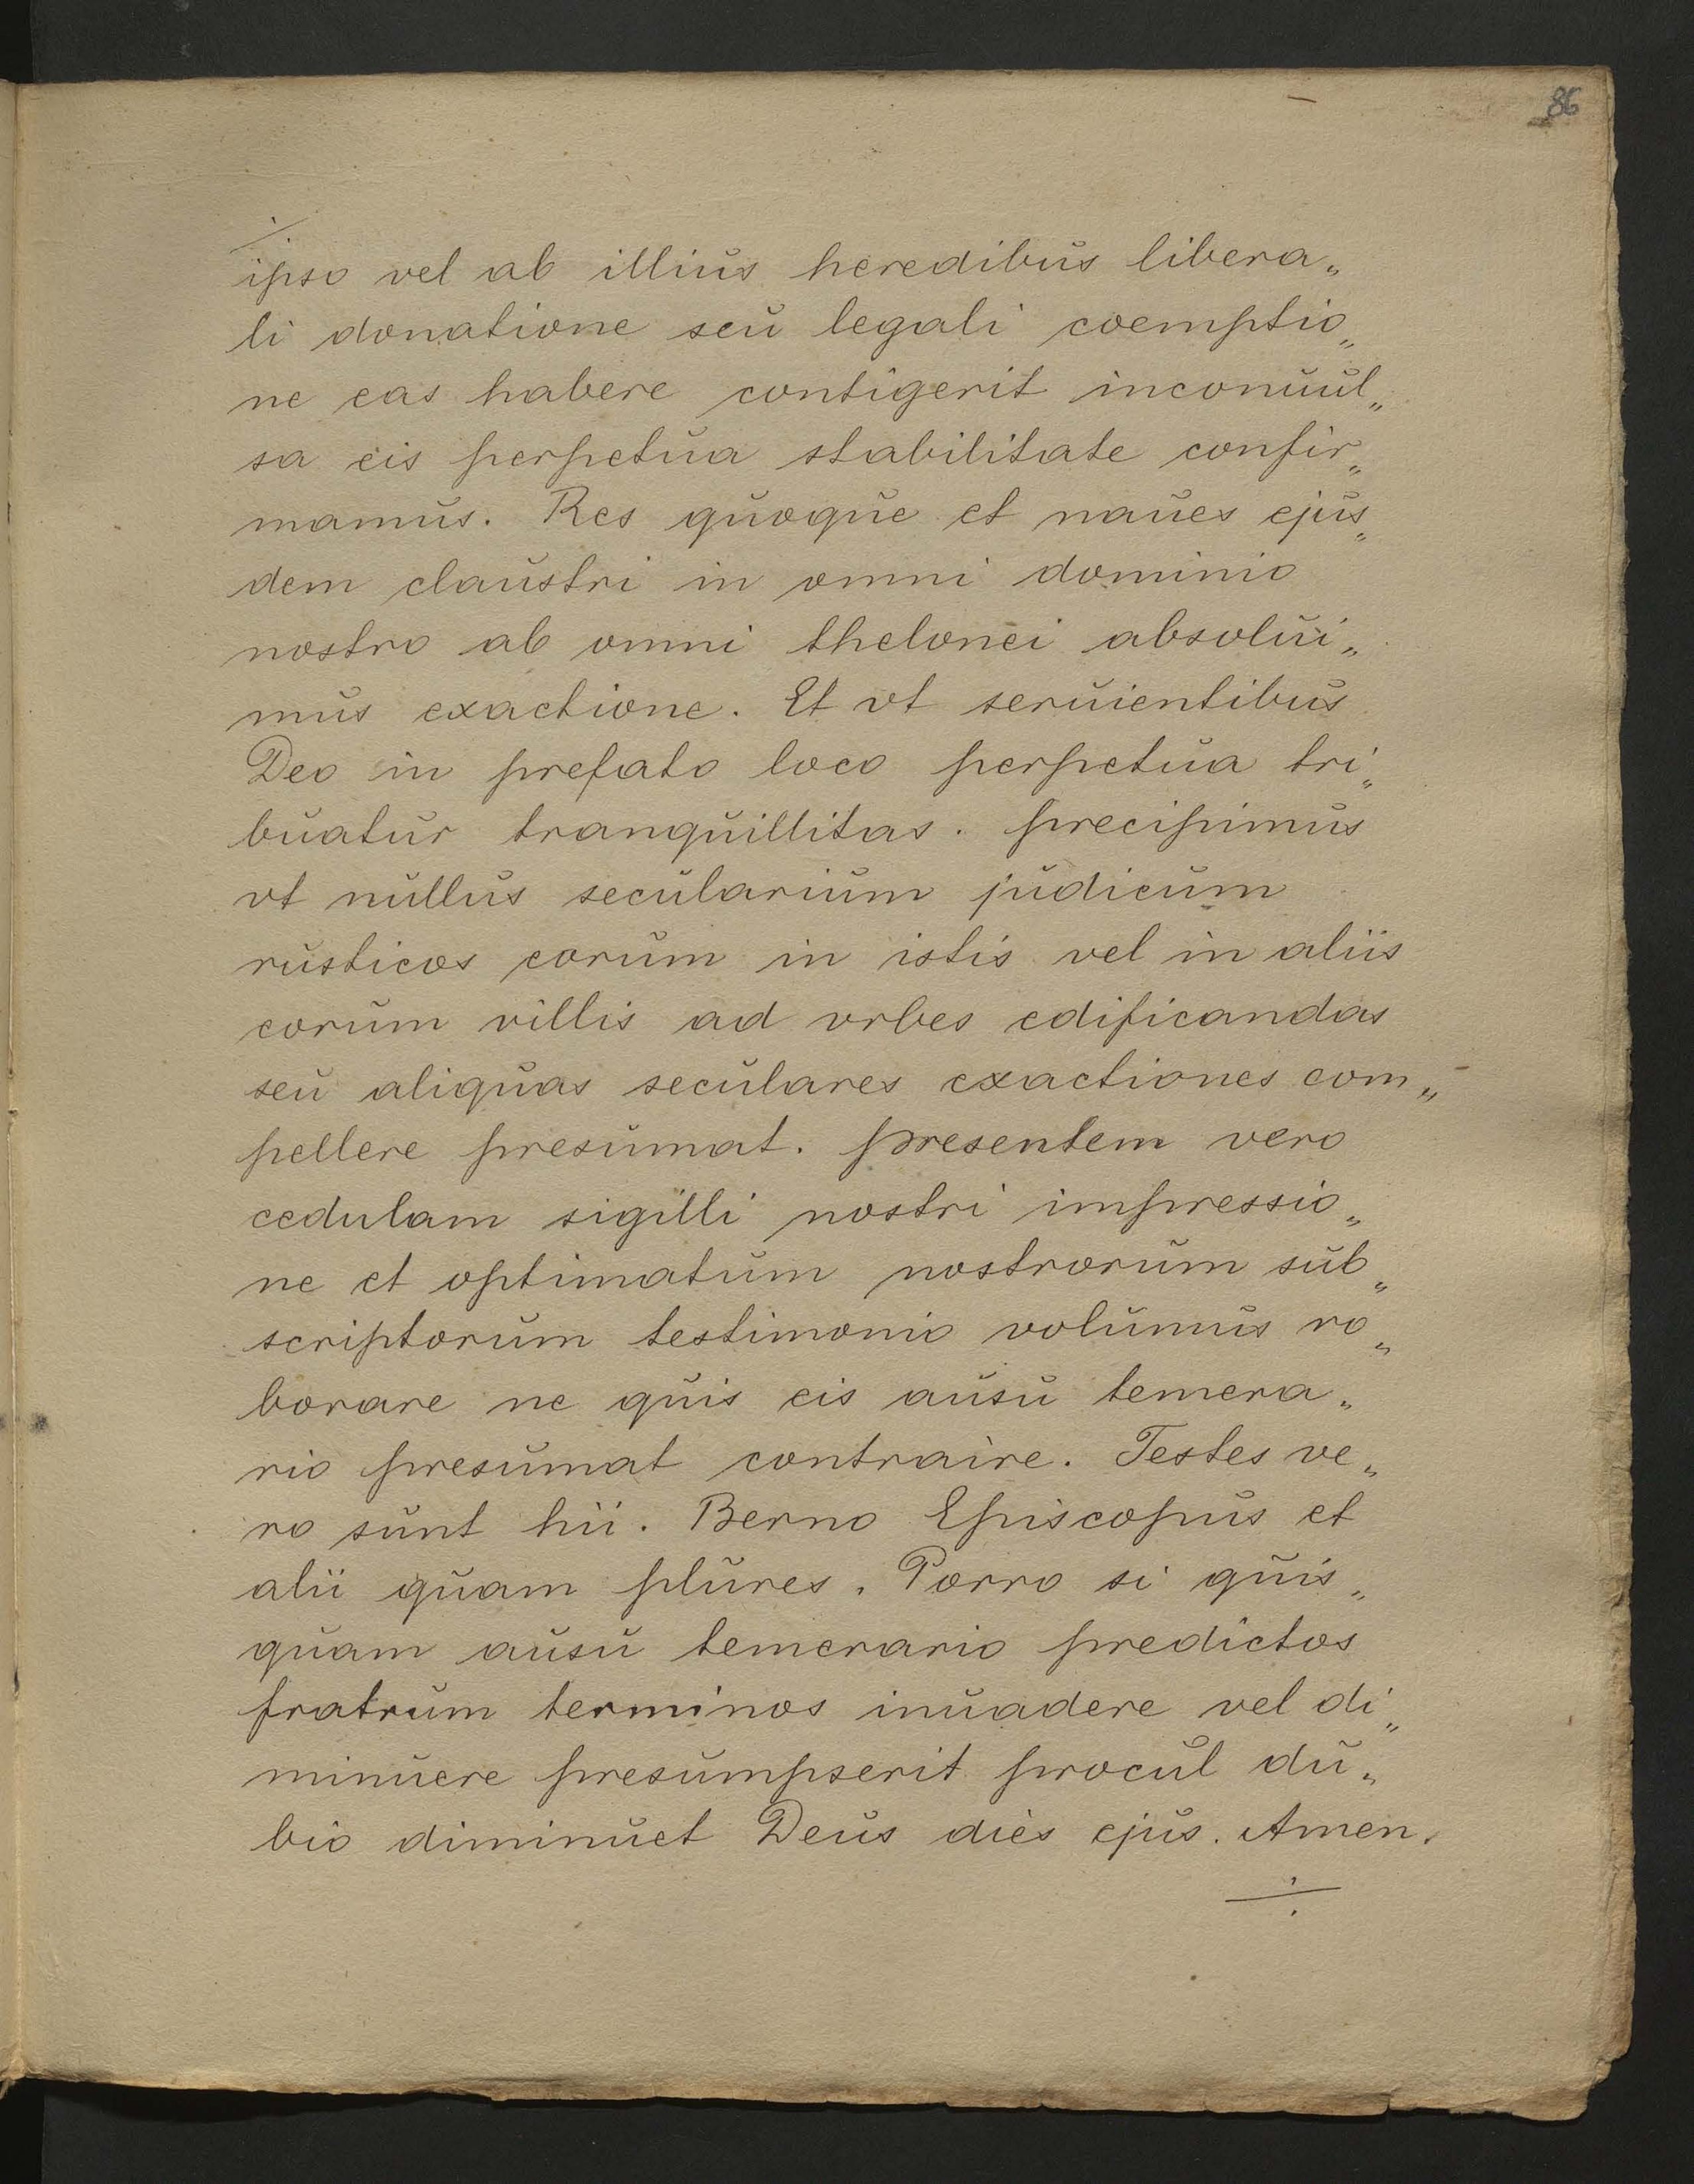 86
ipso vel ab illius heredibus libera„
li donatione seu legali coemptio„
ne eas habere contigerit inconuul„
sa eis perpetua stabilitate confir„
mamus. Res quoque et naues ejus„
dem claustri in omni dominio
nostro ab omni thelonei absolui„
mus exactione. Et vt seruientibus
Deo in prefato loco perpetua tri„
buatur tranquillitas. precipimus
vt nullus secularium judicum
rusticos eorum in istis vel in aliis
eorum villis ad vrbes edificandas
seu aliquas seculares exactiones com„
pellere presumat. presentem vero
cedulam sigilli nostri impressio„
ne et optimatum nostrorum sub„
scriptorum testimonio volumus ro„
borare ne quis eis ausu temera„
rio presumat contraire. Testes ve„
ro sunt hii. Berno Episcopus et
alii quam plures. Porro si quis„
quam ausu temerario predictos
fratrum terminos inuadere vel di„
minuere presumpserit procul du„
bio diminuet Deus dies ejus. Amen.